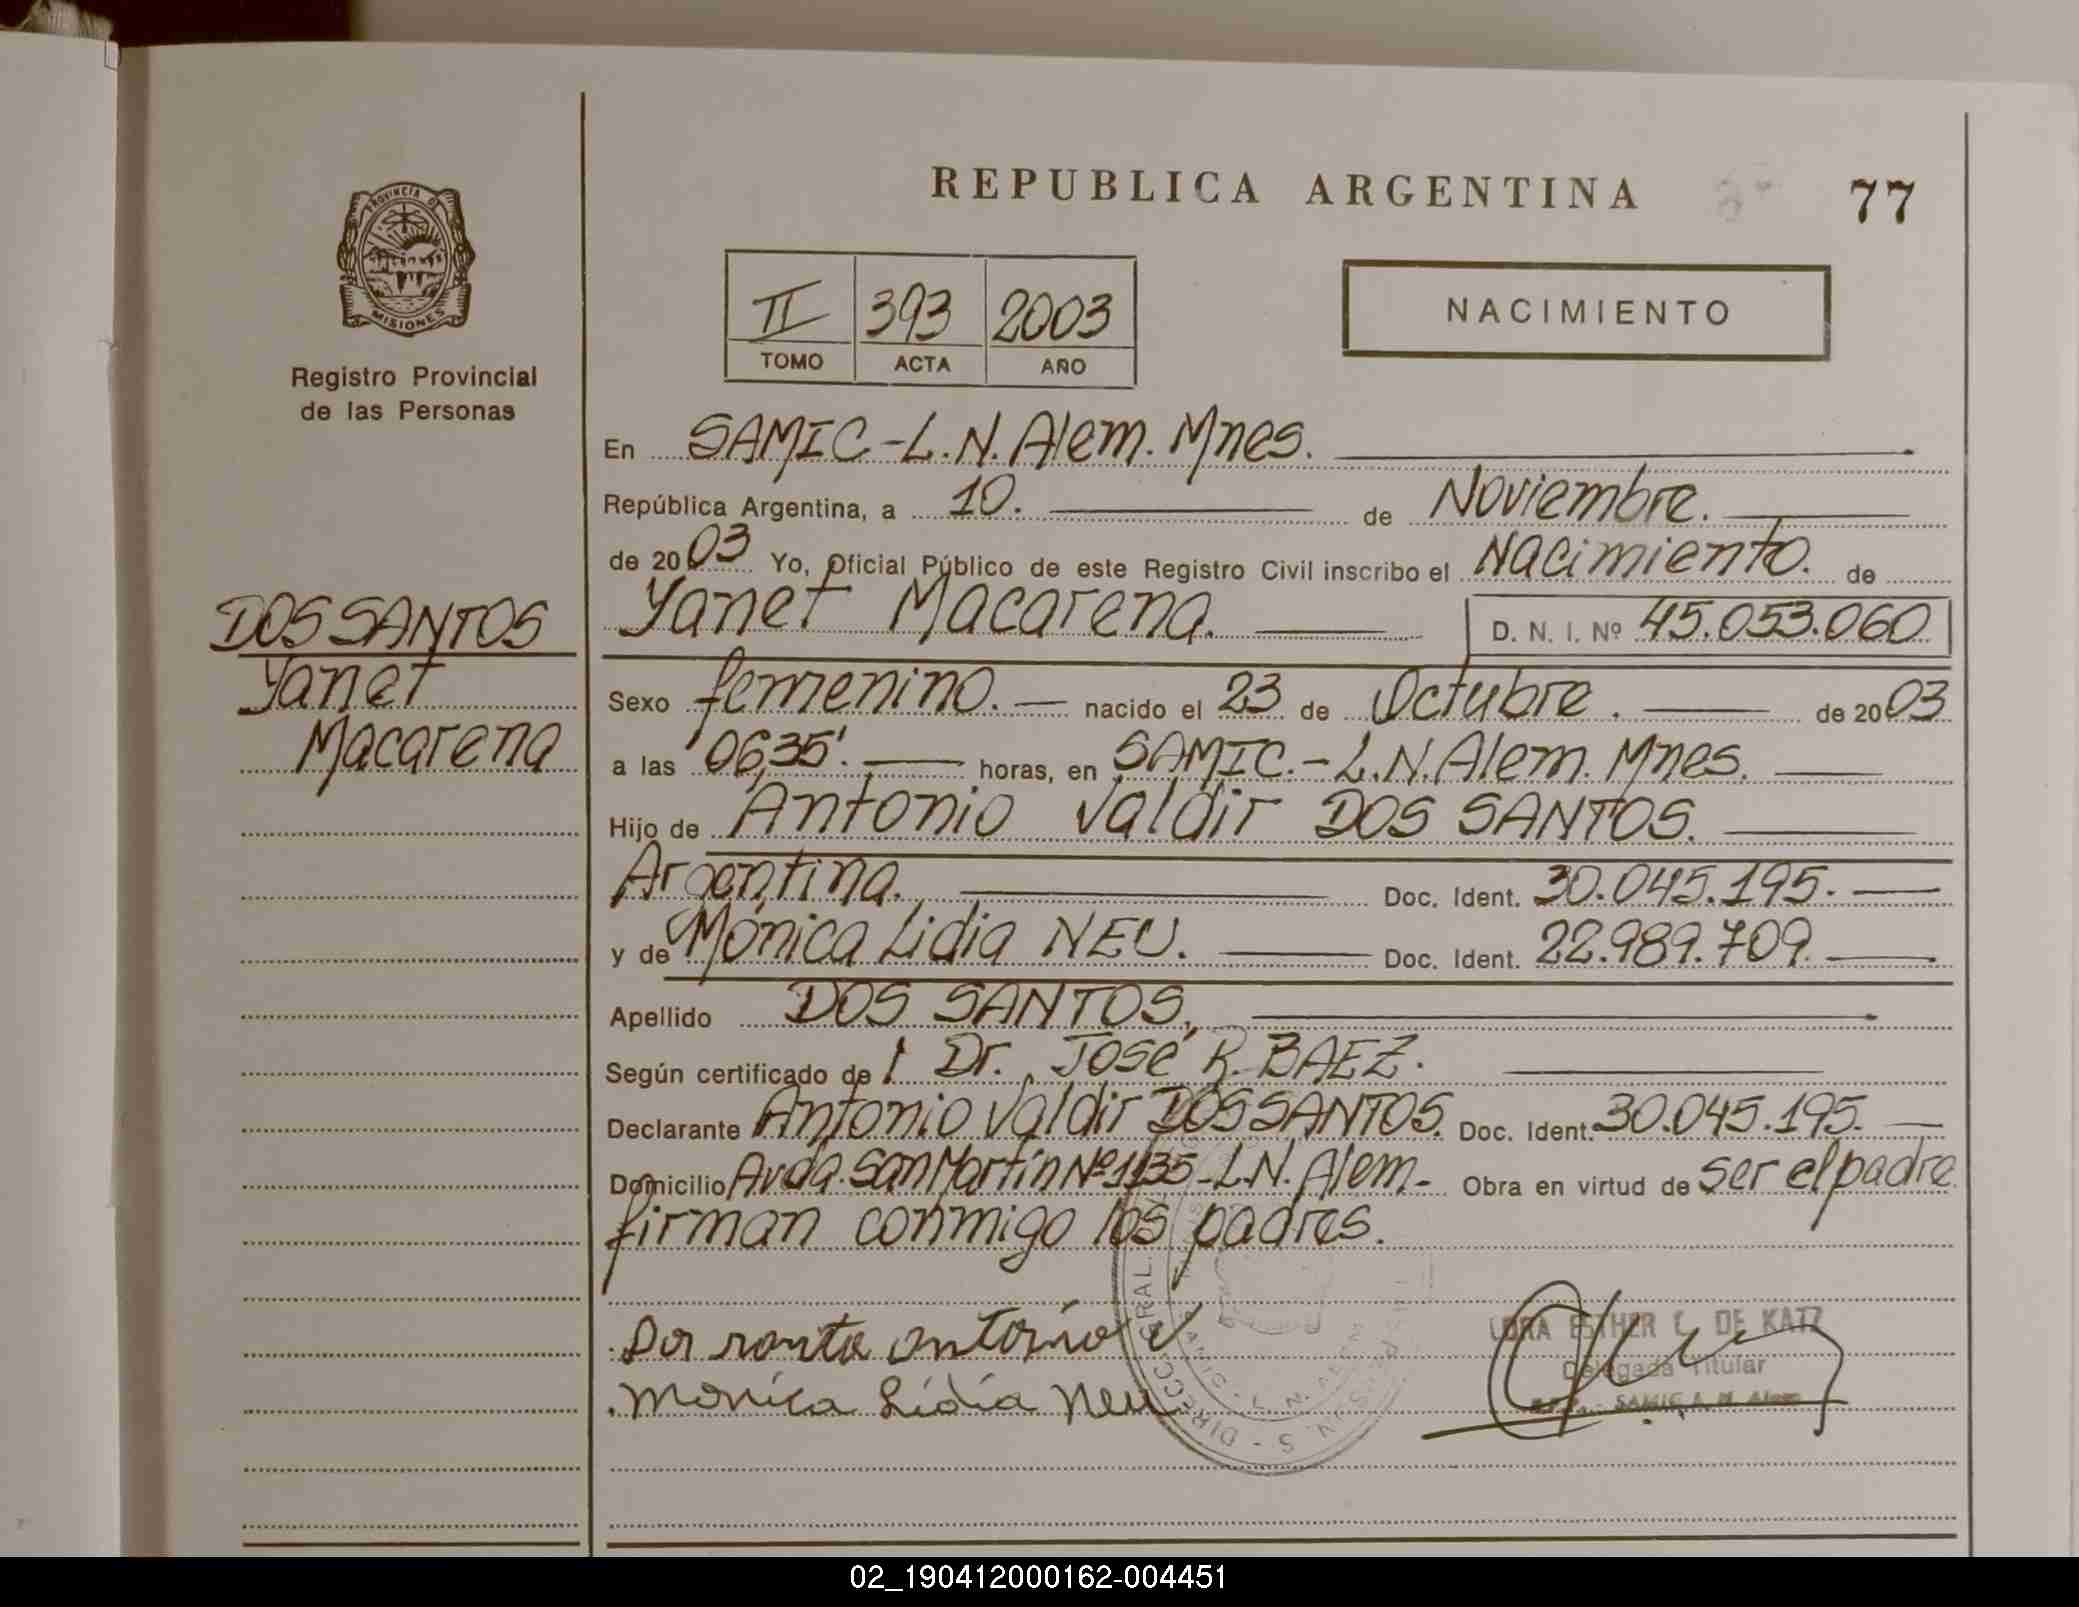 REPUBLICA ARGENTINA
77
PROVINCIA DE
MISIONES
Registro Provincial
de las Personas
II 393 2003
TOMO ACTA AÑO
NACIMIENTO
DOS SANTOS
Yanet
Macarena
En SAMIC-L.N.Alem. Mnes.
República Argentina, a 10. de Noviembre.
de 2003 Yo, Oficial Público de este Registro Civil inscribo el Nacimiento. de
Yanet Macarena. D. N. I. Nº 45.053.060
Sexo femenino. nacido el 23 de Octubre. de 2003
a las 06,35'. horas, en SAMIC.-L.N.Alem. Mnes.
Hijo de Antonio Valdir DOS SANTOS.
Argentina. Doc. Ident. 30.045.195.
y de Mónica Lidia NEU. Doc. Ident. 22.989.709.
Apellido DOS SANTOS.
Según certificado de l Dr. José R. BAEZ.
Declarante Antonio Valdir DOS SANTOS. Doc. Ident. 30.045.195.
Domicilio Avda. San Martín Nº 1135-L.N. Alem.- Obra en virtud de ser el padre
firman conmigo los padres.
Dos santos antonio V
Monica Lidia Neu
ESTHER DE KATZ
Delegada Titular
SAMIC L. N. Alem
02_190412000162-004451